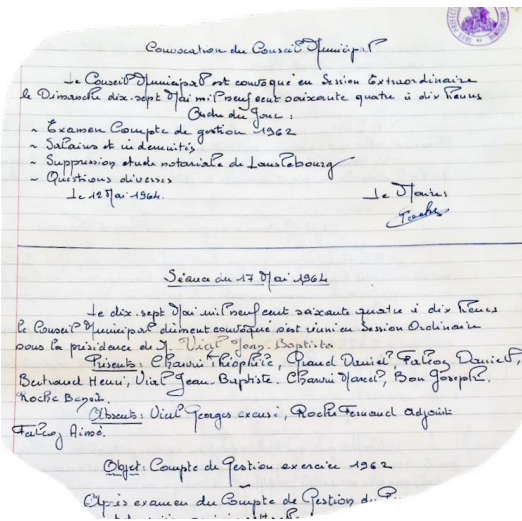 Convocation du Conseil Municipal
Le Conseil Municipal est convoqué en Session Extraordinaire
le Dimanche dix-sept Mai mil neuf cent soixante quatre à dix heures
Ordre du Jour :
~ Examen Compte de gestion 1962
~ Salaires et indemnités
~ Suppression etude notariale de Lanslebourg
~ Questions diverses
Le 12 Mai 1964. Le Maire:
Séance du 17 Mai 1964
Le dix-sept Mai mil neuf cent soixante quatre à dix heures
le Conseil Municipal dûment convoqué s'est réuni en Session Ordinaire
sous la présidence de M. Vial Jean-Baptiste
Présents : Charvin Théophile, Daniel, Falcoz Daniel,
Bertrand Henri, Vial Jean-Baptiste. Charvin Marcel, Bon Joseph.
Roche Benoit.
Absents : Vial Georges excusé, Roche Fernand adjoint
Falcoz Aimé.
Objet : Compte de Gestion exercice 1962
Après examen du Compte de Gestion